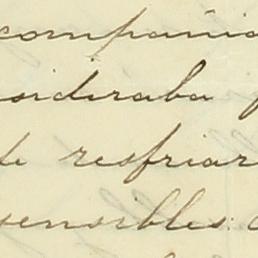 compañia
sideraba
de resfriar
sensibles